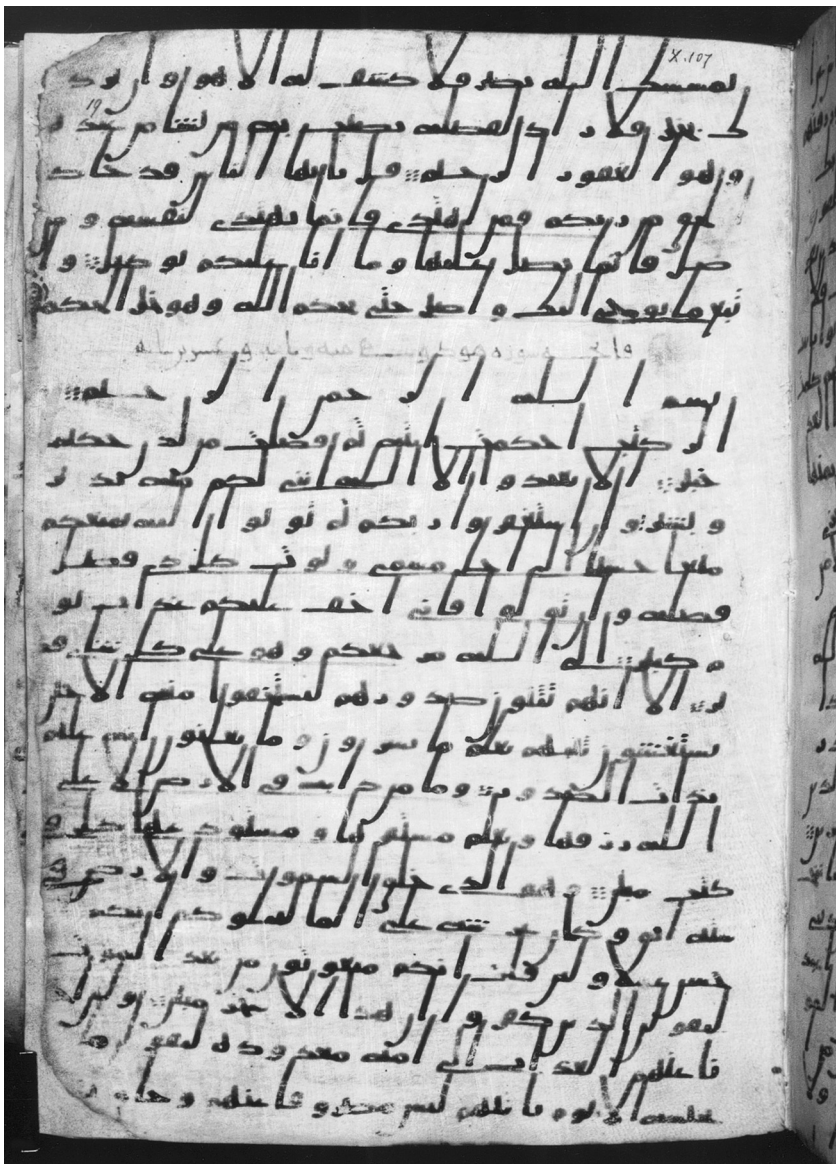 يمسسك الله بضر فلا كشف له الا هو وان يرد
ك بخير فلا راد لفضله يصيب به من يشا من عبده
وهو الغفور الرحيم قل يايها الناس قد جاكم
الحق من ربكم فمن اهتدى فانما يهتدي لنفسه ومن
ضل فانما يضل عليها وما انا عليكم بوكيل وا
تبع ما يوحى اليك واصبر حتى يحكم الله وهو خير الحكمين
سوره هود
بسم الله الرحمن الرحيم
الر كتب احكمت ايته ثم فصلت من لدن حكيم
خبير الا تعبدوا الا الله انني لكم منه نذير
وبشير وان استغفروا ربكم ثم توبوا اليه يمتعكم
متعا حسنا الى اجل مسمى ويوت كل ذي فضل
فضله وان تولوا فاني اخف عليكم عذاب يو
م كبير الى الله مرجعكم وهو على كل شي قد
ير الا انهم يثنون صدورهم ليستخفوا منه الا حين
يستغشون ثيبهم يعلم ما يسرون وما يعلنون انه عليم
بذات الصدور وما من دابه في الارض الا على
الله رزقها ويعلم مستقرها ومستودعها كل في
كتب مبين وهو الذي خلق السموت والارض في
سته ايم وكان عرشه على الما ليبلوكم ايكم
احسن عملا ولئن قلت انكم مبعوثون من بعد الموت
ليقولن الذين كفروا ان هذا الا سحر مبين ولئن ا
خرنا عنهم العذاب الى امه معدوده ليقولن ما
يحبسه الا يوم ياتيهم ليس مصروفا عنهم وحاق
X.107
19